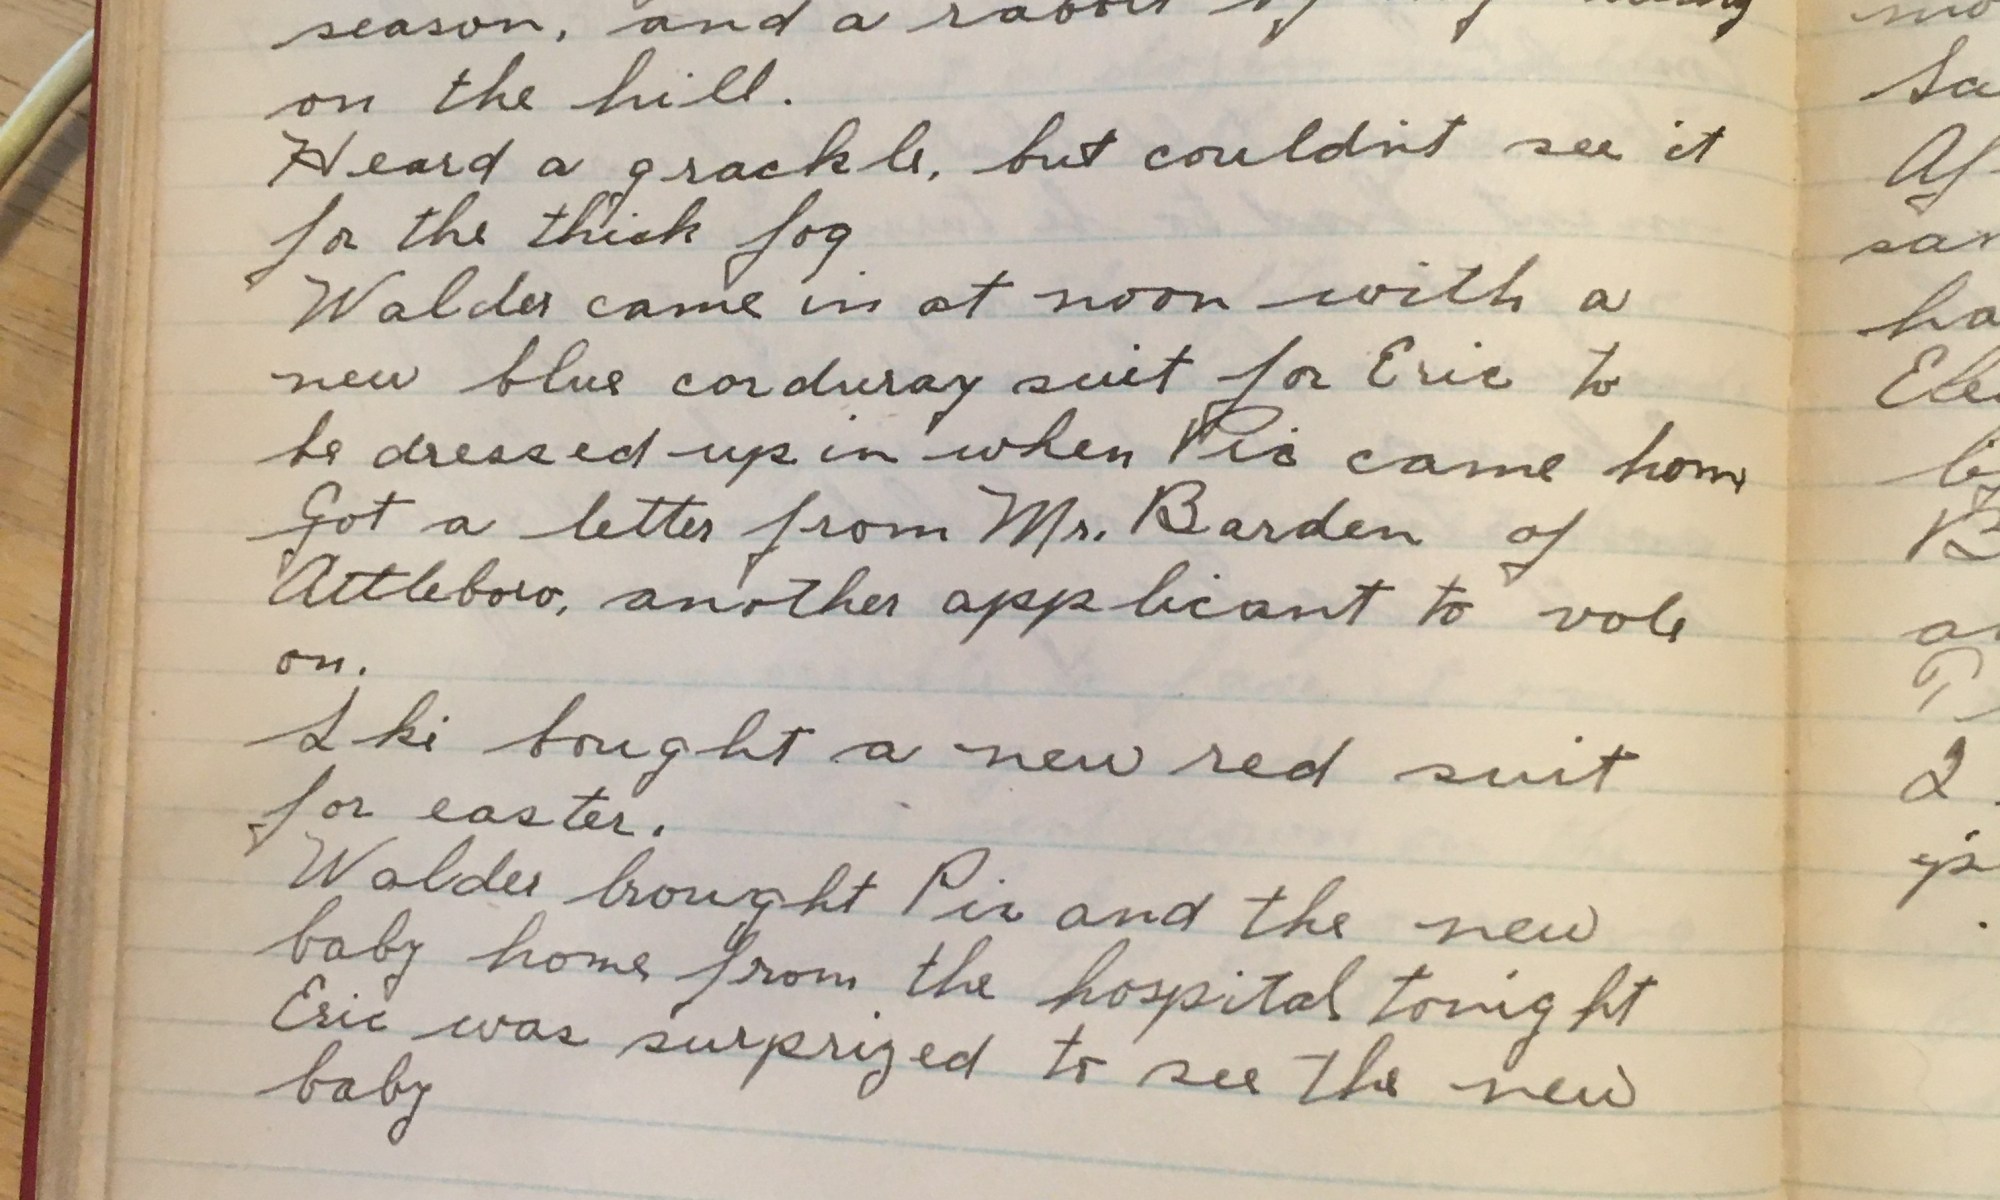 season, and a rabbit
on the hill.
Heard a grackle, but couldn't see it
for the thick fog
Walder came in at noon with a
new blue corduray suit for Eric to
be dressed up in when Pia came home
Got a letter from Mr. Barden of
Attleboro, another applicant to vote
on.
Ski bought a new red suit
for easter.
Walder brought Pia and the new
baby home from the hospital tonight
Eric was surprized to see the new
baby
sa
ha